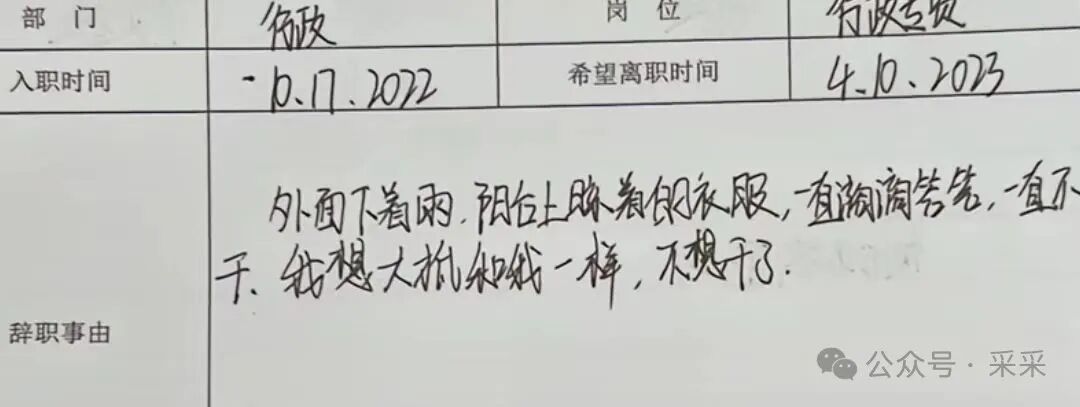 部 门 行政 岗 位 行政专员
入职时间 10.17.2022 希望离职时间 4.10.2023
外面下着雨.阳台上晾着的衣服,一直滴滴答答,一直不
干、我想大抵和我一样,不想干了.
辞职事由
公众号·采采